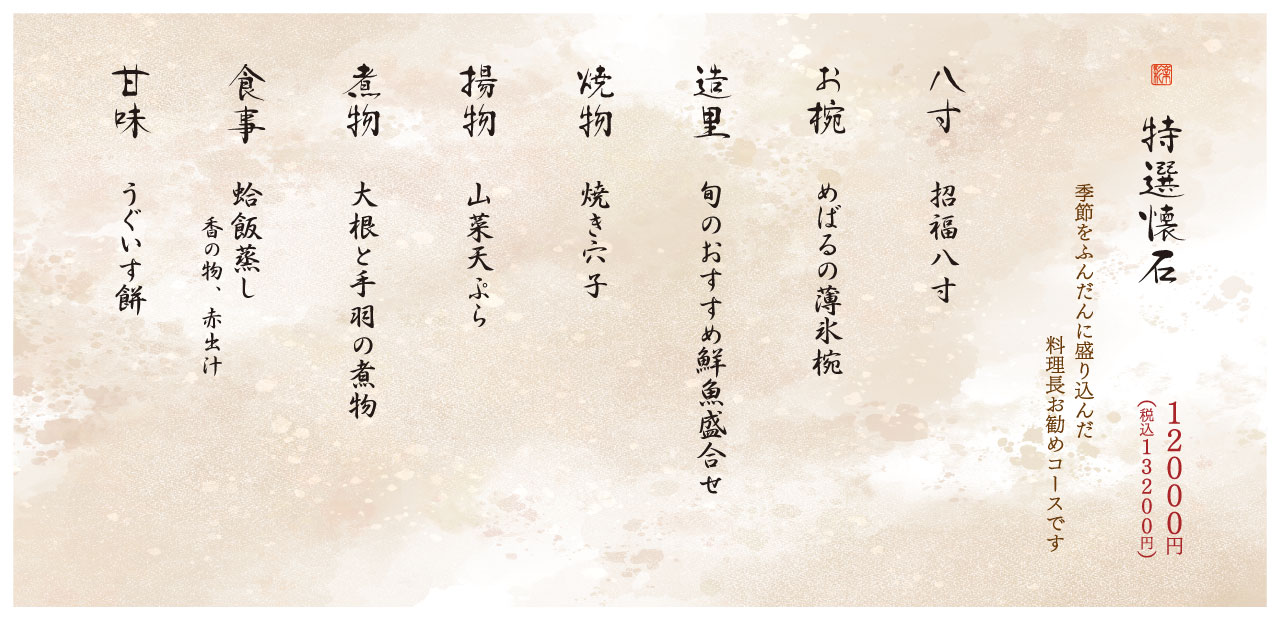 特選懐石
12000円
(税込13200円)
季節をふんだんに盛り込んだ
料理長お勧めコースです
八寸 招福八寸
お椀 めばるの薄氷椀
造里 旬のおすすめ鮮魚盛合せ
焼物 焼き穴子
揚物 山菜天ぷら
煮物 大根と手羽の煮物
食事 蛤飯蒸し
香の物、赤出汁
甘味 うぐいす餅